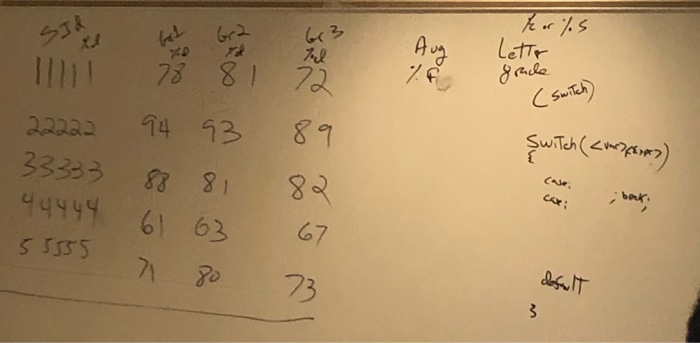 SId Gr1 Gr2 Gr3 % c or % s
%d %d %d %d Avg Letter
11111 78 81 72 % f grade
(switch)
22222 94 93 89 Switch(<var>
{
33333 88 81 82 case:
case: ; break;
44444 61 63 67
55555 71 80 73 default
}